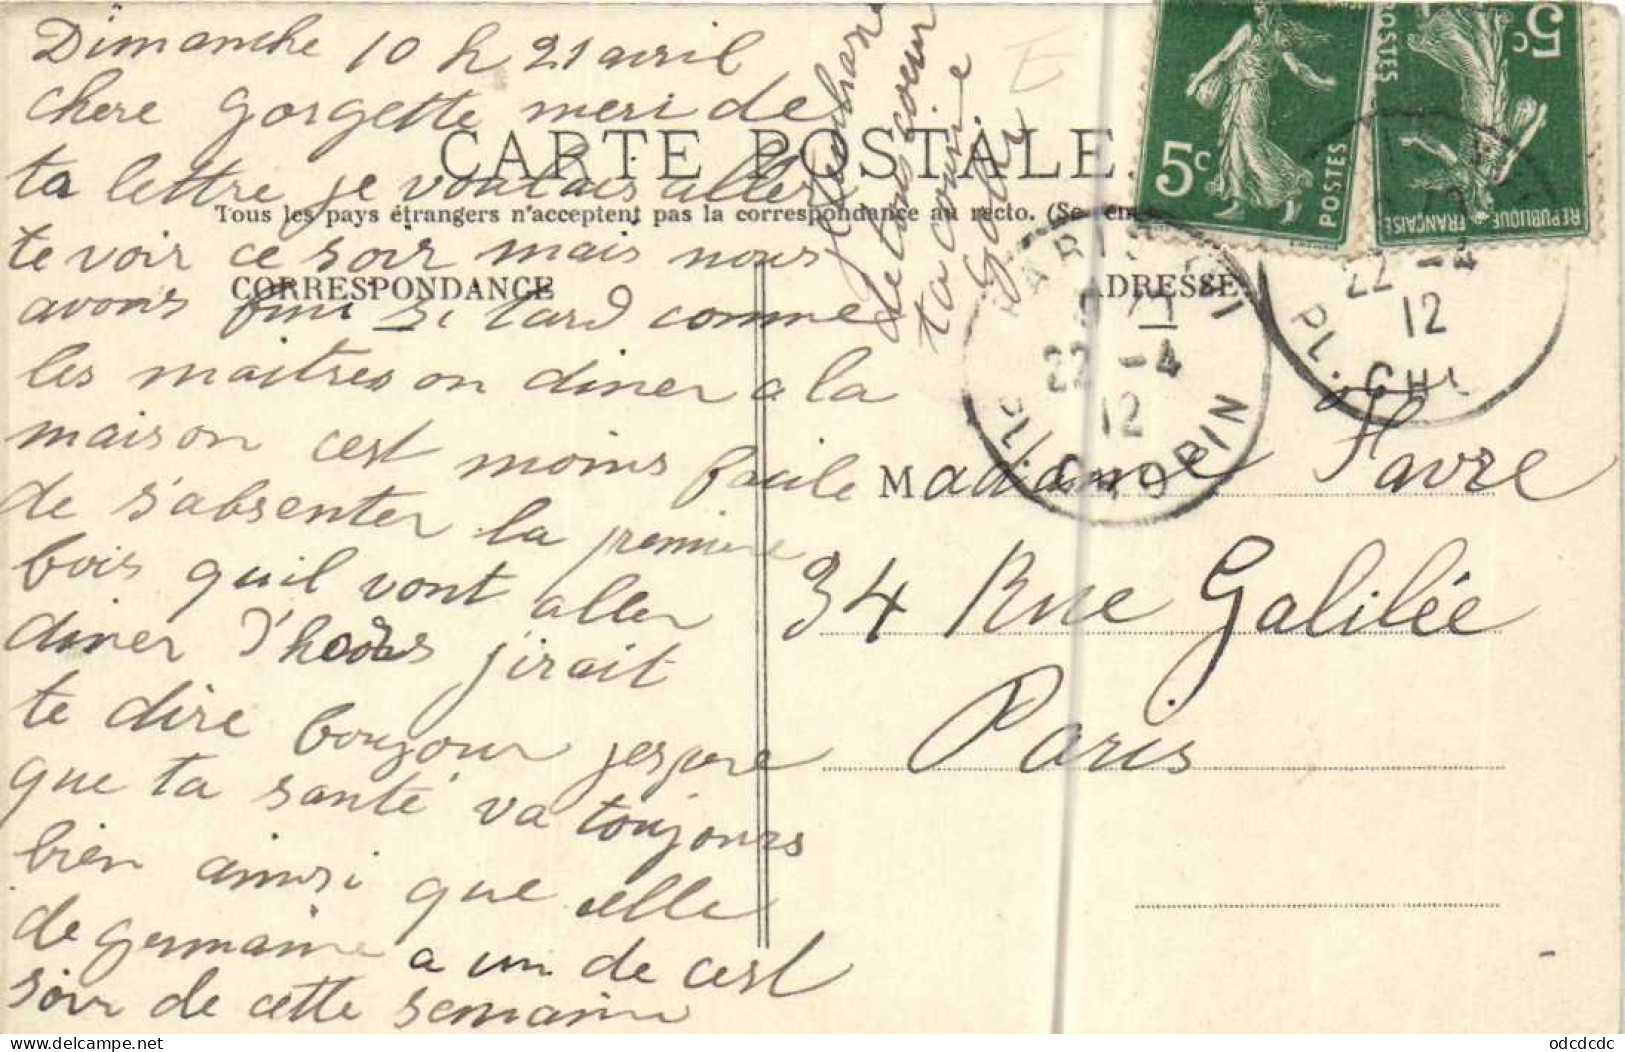 Dimanche 10 h 21 avril
chere gorgette merci de
ta lettre je voulais aller
te voir ce soir mais nous
avons fini si tard comme
les maitres on diner a la
maison cest moins facile
de s'absenter la premiere
bois quil vont aller
diner j'irait
te dire boujour jespere
que ta santé va toujours
bien ainsi que celle
de germaine a un de cest
soir de cette semaine
de tous coeur
ta cousine
CARTE POSTALE
Tous les pays étrangers n'acceptent pas la correspondance au recto. (Se
CORRESPONDANCE
ADRESSE
Madame Favre
34 Rue Galilée
Paris
5c
POSTES
5c
POSTES
REPUBLIQUE FRANÇAISE
PARIS
22 -4
12
PL. CHOPIN
22 -4
12
PL. CH
E
odcdcdc